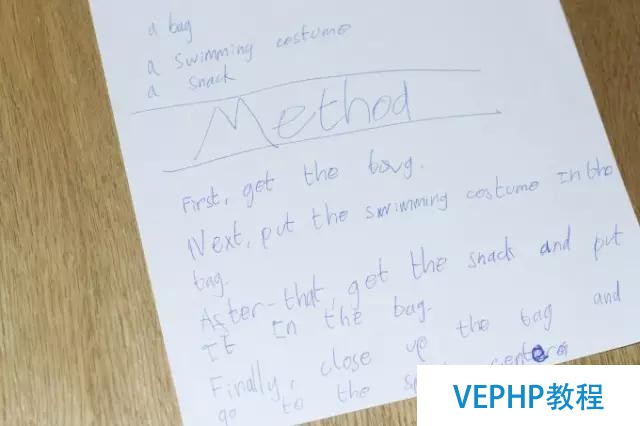 a bag
a swimming costume
a snack
Method
First, get the bag.
Next, put the swimming costume In the
bag.
After-that, get the snack and put
It In the bag.
Finally, close up the bag and
go to the
VEPHP教程